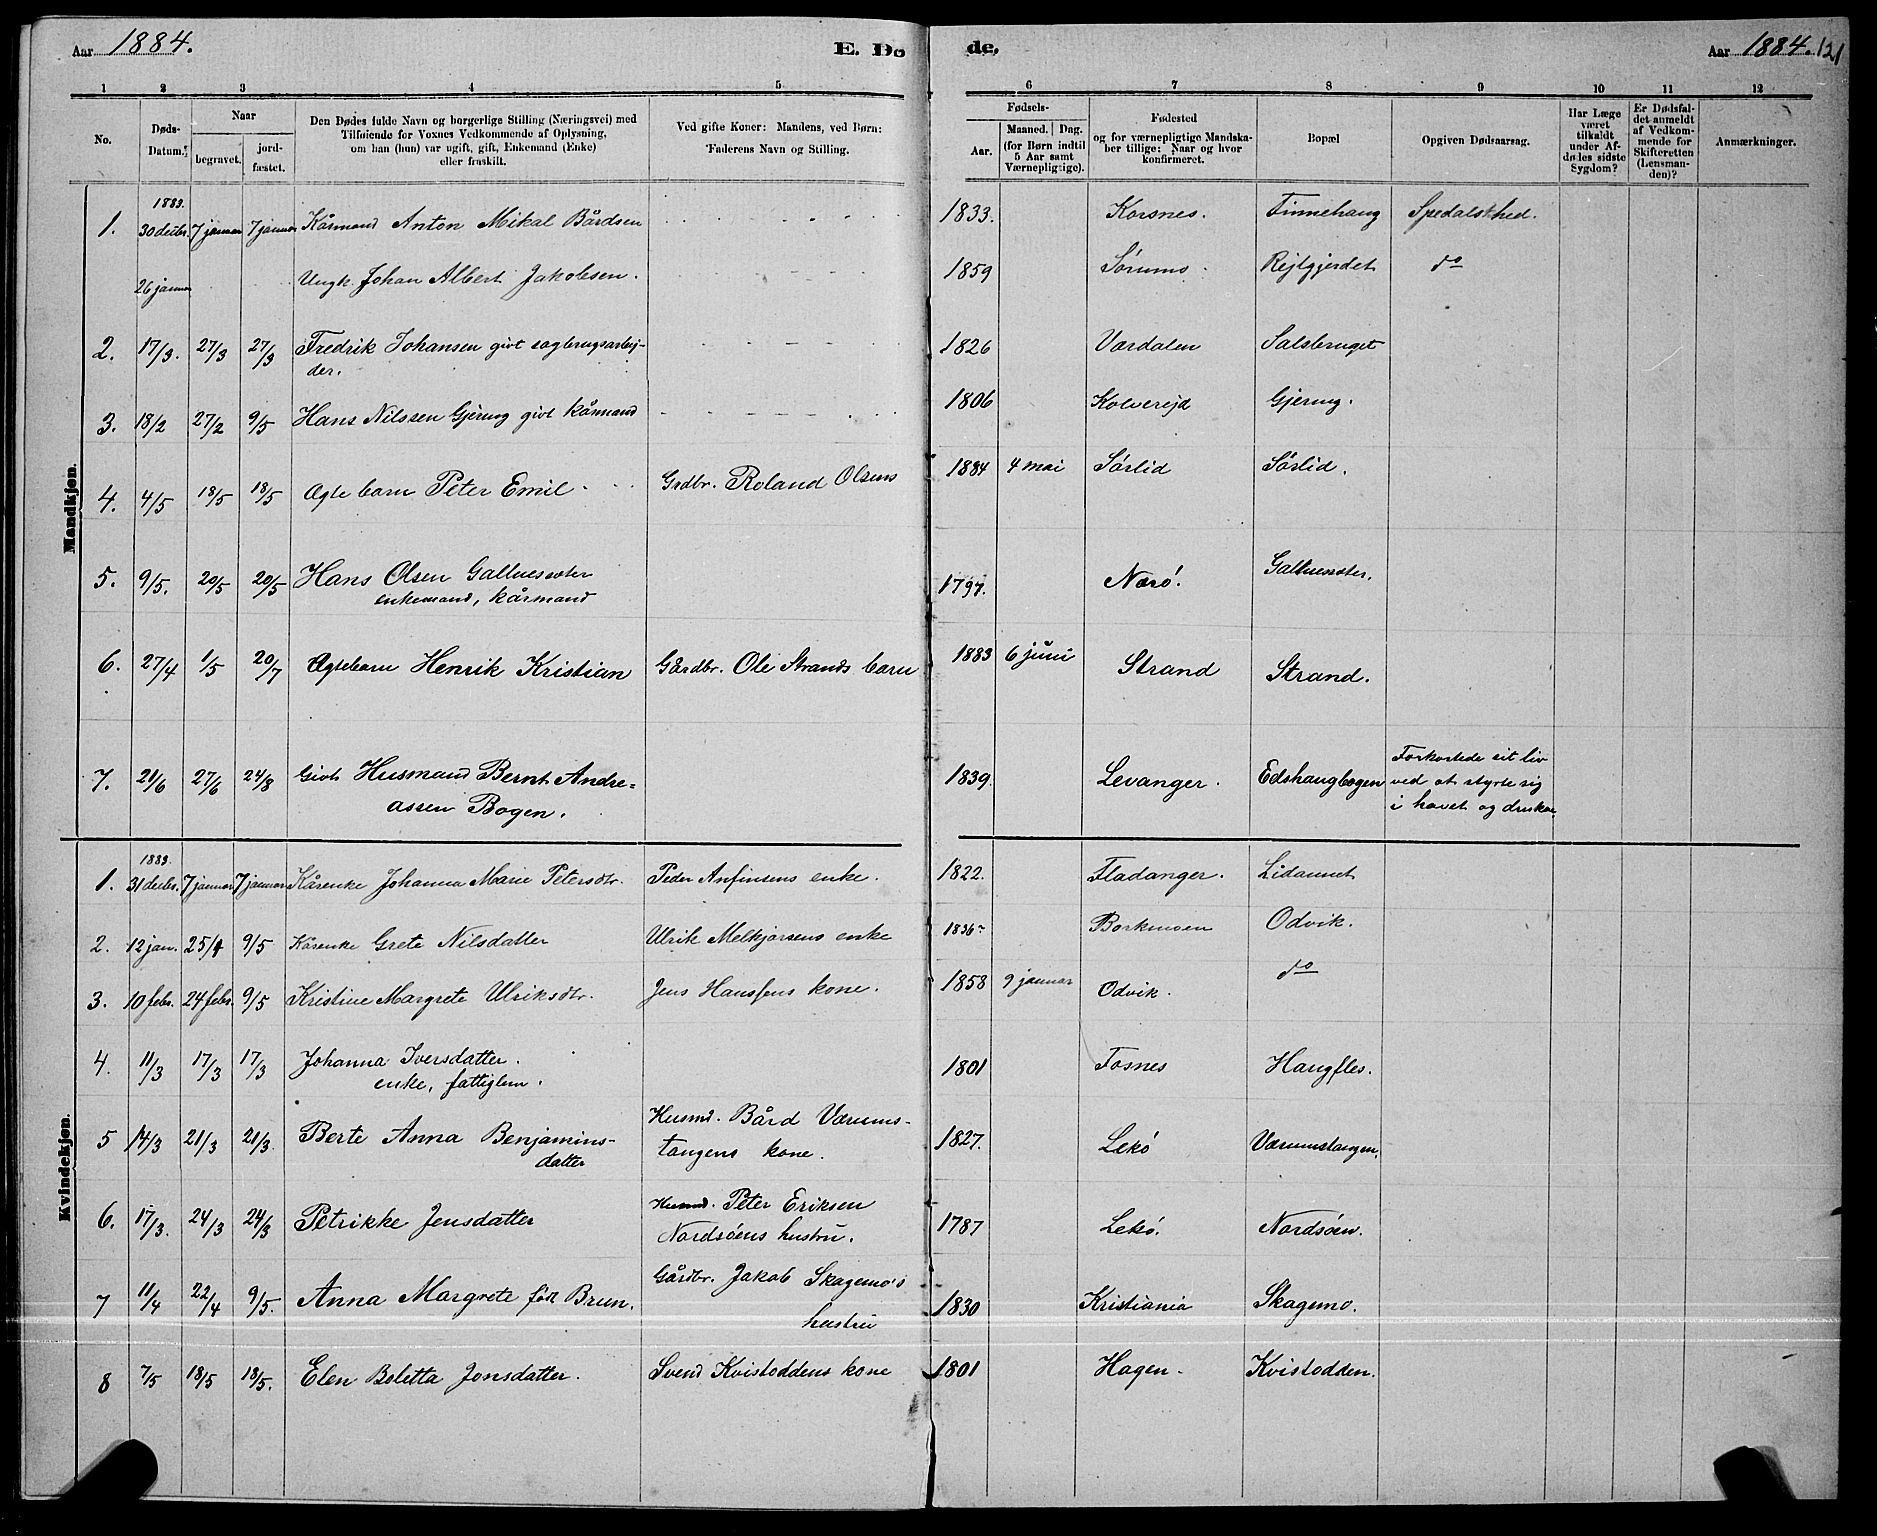 Aar 1884. E. Dø de, Aar 1884. 121
1 2 3 4 5 6 7 8 9 10 11 12
No. Døds-Datum. Naar begravet. jordfæstet.
Den Dødes fulde Navn og borgerlige Stilling (Næringsvei) med
Tilføiende for Voxnes Vedkommende af Oplysning,
om han (hun) var ugift, gift, Enkemand (Enke)
eller fraskilt.
Ved gifte Koner: Mandens, ved Børn:
Faderens Navn og Stilling.
Fødsels-
Aar. Maaned. Dag.
(for Børn indtil
5 Aar samt
Værnepligtige).
Fødested
og for værnepligtige Mandska-
ber tillige: Naar og hvor
konfirmeret.
Bopæl
Opgiven Dødsaarsag.
Har Læge
været
tilkaldt
under Af-
dødes sidste
Sygdom?
Er Dødsfal-
det anmeldt
af Vedkom-
mende for
Skifteretten
(Lensman-
den)?
Anmærkninger.
Mandkjøn.
1883.
1. 30 decbr. 7 januar 7 januar Kårmand Anton Mikal Bårdsen 1833. Korsnes. Finnehaug Spedalskhed.
26 januar Ungk. Johan Albert Jakobsen. 1859 Sørumo. Rejtgjerdet do
2. 17/3. 27/3 27/3 Fredrik Johansen givt sagbrugsarbej-
der. 1826 Værdalen Salsbruget
3. 18/2 27/2 9/5 Hans Nilssen Gjerug givt kårmand 1806 Kolverejd Gjerug.
4. 4/5 18/5 18/5 Ægte barn Peter Emil. Grdbr. Roland Olsens 1884 4 mai Sørlid Sørlid.
5. 9/5. 20/5 20/5 Hans Olsen Galtnesseter
enkemand, kårmand 1797. Nærø. Galtnesseter.
6. 27/4 1/5 20/7 Ægtebarn Henrik Kristian Gårdbr. Ole Strands barn 1883 6 juni Strand Strand.
7. 21/6 27/6 24/8 Givt Husmand Bernt Andre=
assen Bogen. 1839. Levanger. Edshaugbogen Forkortede sit liv
ved at styrte sig
i havet og drukne
Kvindekjøn.
1883.
1. 31 decbr. 7 januar 7 januar Kårenke Johanna Marie Petersdtr. Peder Anfinsens enke. 1822. Fladanger. Lidannet
2. 12 jan. 25/1 9/5 Kårenke Grete Nilsdatter Ulrik Melkjørsens enke 1836 Borkmoen Odvik.
3. 10 febr. 24 febr. 9/5 Kristine Margrete Ulriksdtr. Jens Hanssens kone. 1858 9 januar Odvik. do
4. 11/3 17/3 17/3 Johanna Iversdatter.
enke, fattiglem. 1801 Fosnes Haugfles.
5 14/3 21/3 21/3. Berte Anna Benjamins-
datter Husmd. Bård Værums-
tangens kone. 1827. Lekø Værumstangen.
6. 17/3. 24/3 24/3 Petrikke Jensdatter Husmd. Peter Eriksen
Nordsøens hustru. 1787 Lekø. Nordsøen.
7 11/4 22/4 9/5. Anna Margrete født Brun. Gårdbr. Jakob Skagemo's
hustru 1830 Kristiania Skagemo.
8 7/5 18/5 18/5. Elen Boletta Jonsdatter. Svend Kvistoddens kone 1801 Hagen. Kvistodden.